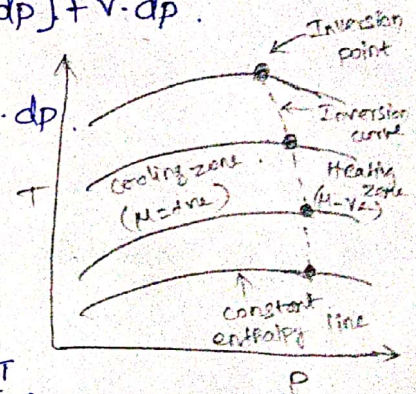 dp]+ v. dp.
Inversion
point
. dp.
Inversion
curve
cooling zone.
(μ=+ve)
Heating
zone
(μ-ve)
T
constant
enthalpy line
T
P